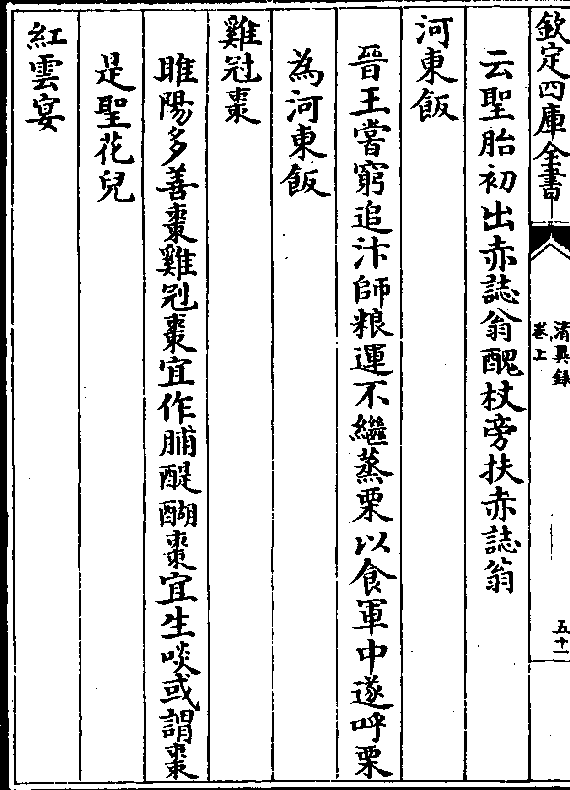 欽定四庫全書
清異錄
卷上
五十一
云聖胎初出赤誌翁醜杖旁扶赤誌翁
河東飯
晉王嘗窮追汴師粮運不繼蒸栗以食軍中遂呼栗
為河東飯
雞冠棗
睢陽多善棗雞冠棗宜作脯醍醐棗宜生啖或謂棗
是聖花兒
紅雲宴